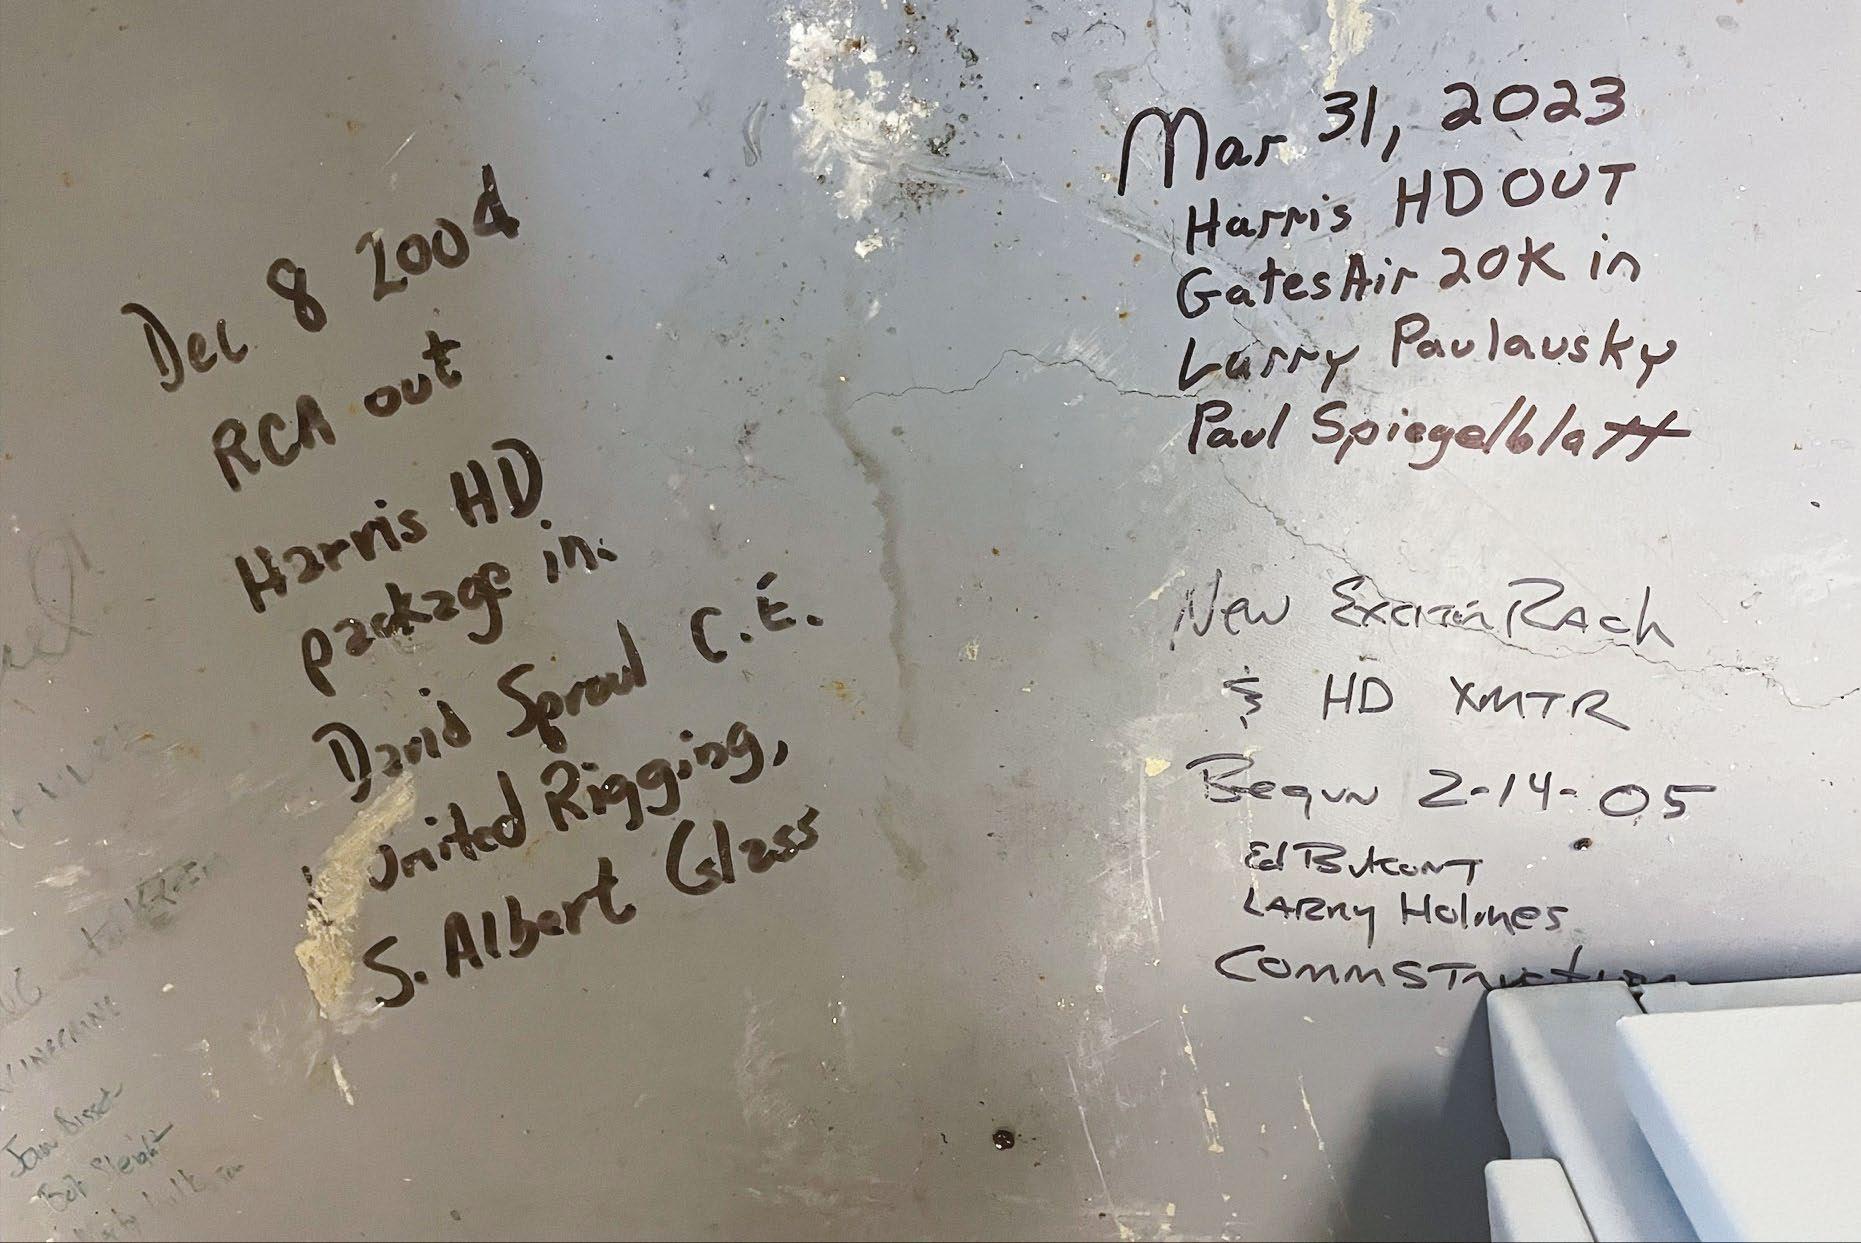 Dec 8 2004
RCA out
Harris HD
package in.
David Sproul C.E.
United Rigging,
S. Albert Glass
Mar 31, 2023
Harris HD OUT
GatesAir 20K in
Larry Paulausky
Paul Spiegelblatt
New Exciter Rack
& HD XMTR
Begun 2-14-05
Ed Bukont
LARRY Holmes
CommSTruction
Bob Sleight